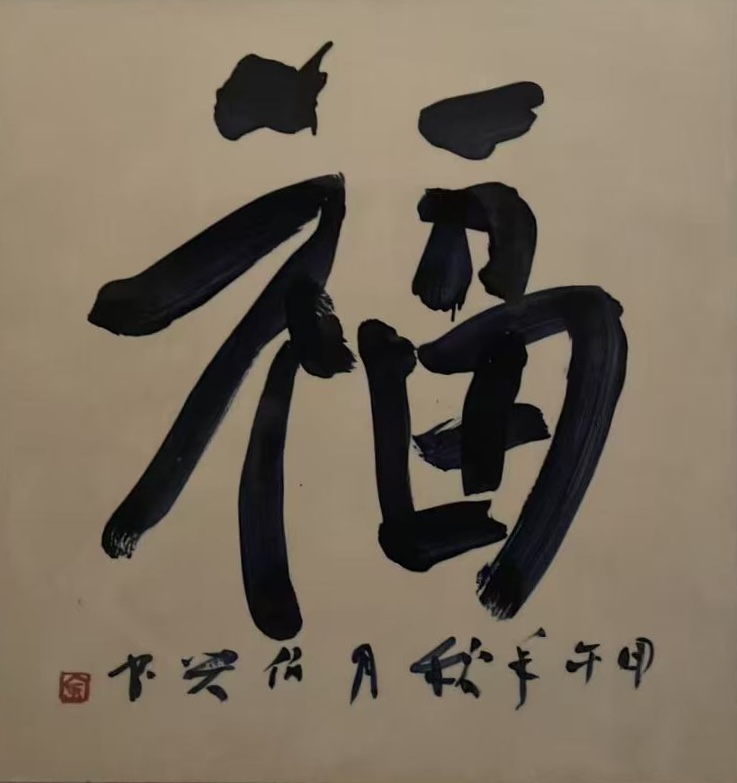 福
甲午年秋月伯兴书